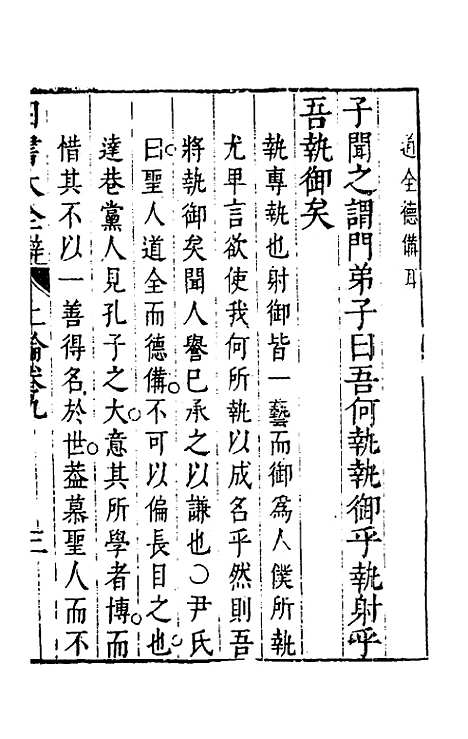 道全德備耳
子聞之謂門弟子曰吾何執執御乎執射乎
吾執御矣
執專執也射御皆一藝而御爲人僕所執
尤卑言欲使我何所執以成名乎然則吾
將執御矣聞人譽己承之以謙也○尹氏
曰聖人道全而德備不可以偏長目之也
達巷黨人見孔子之大意其所學者博而
惜其不以一善得名於世葢慕聖人而不
四書大全辯 上論卷九 三